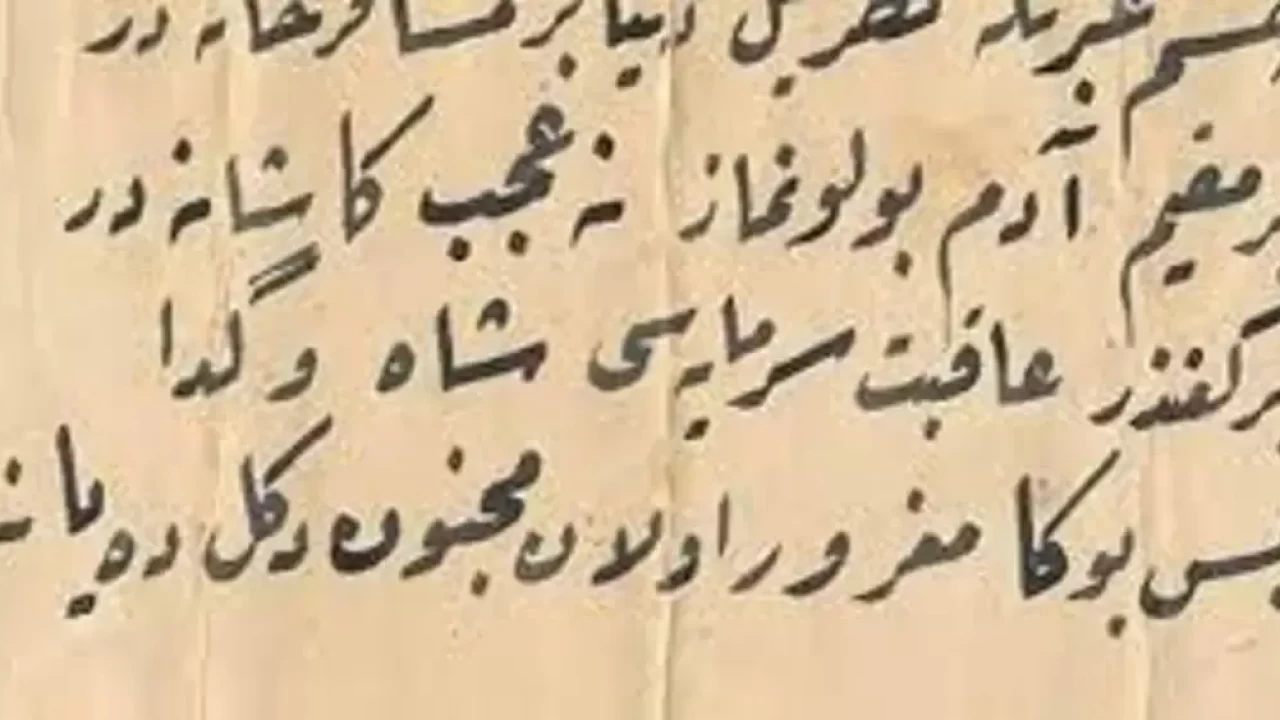 عبرتله نظر قیل دنیا بر مسافرخانه در
مقیم آدم بولونماز نه عجب کاشانه در
بر کفندر عاقبت سرمایه سی شاه و گدا
بوکا مغرور اولان مجنون دکل ده یا